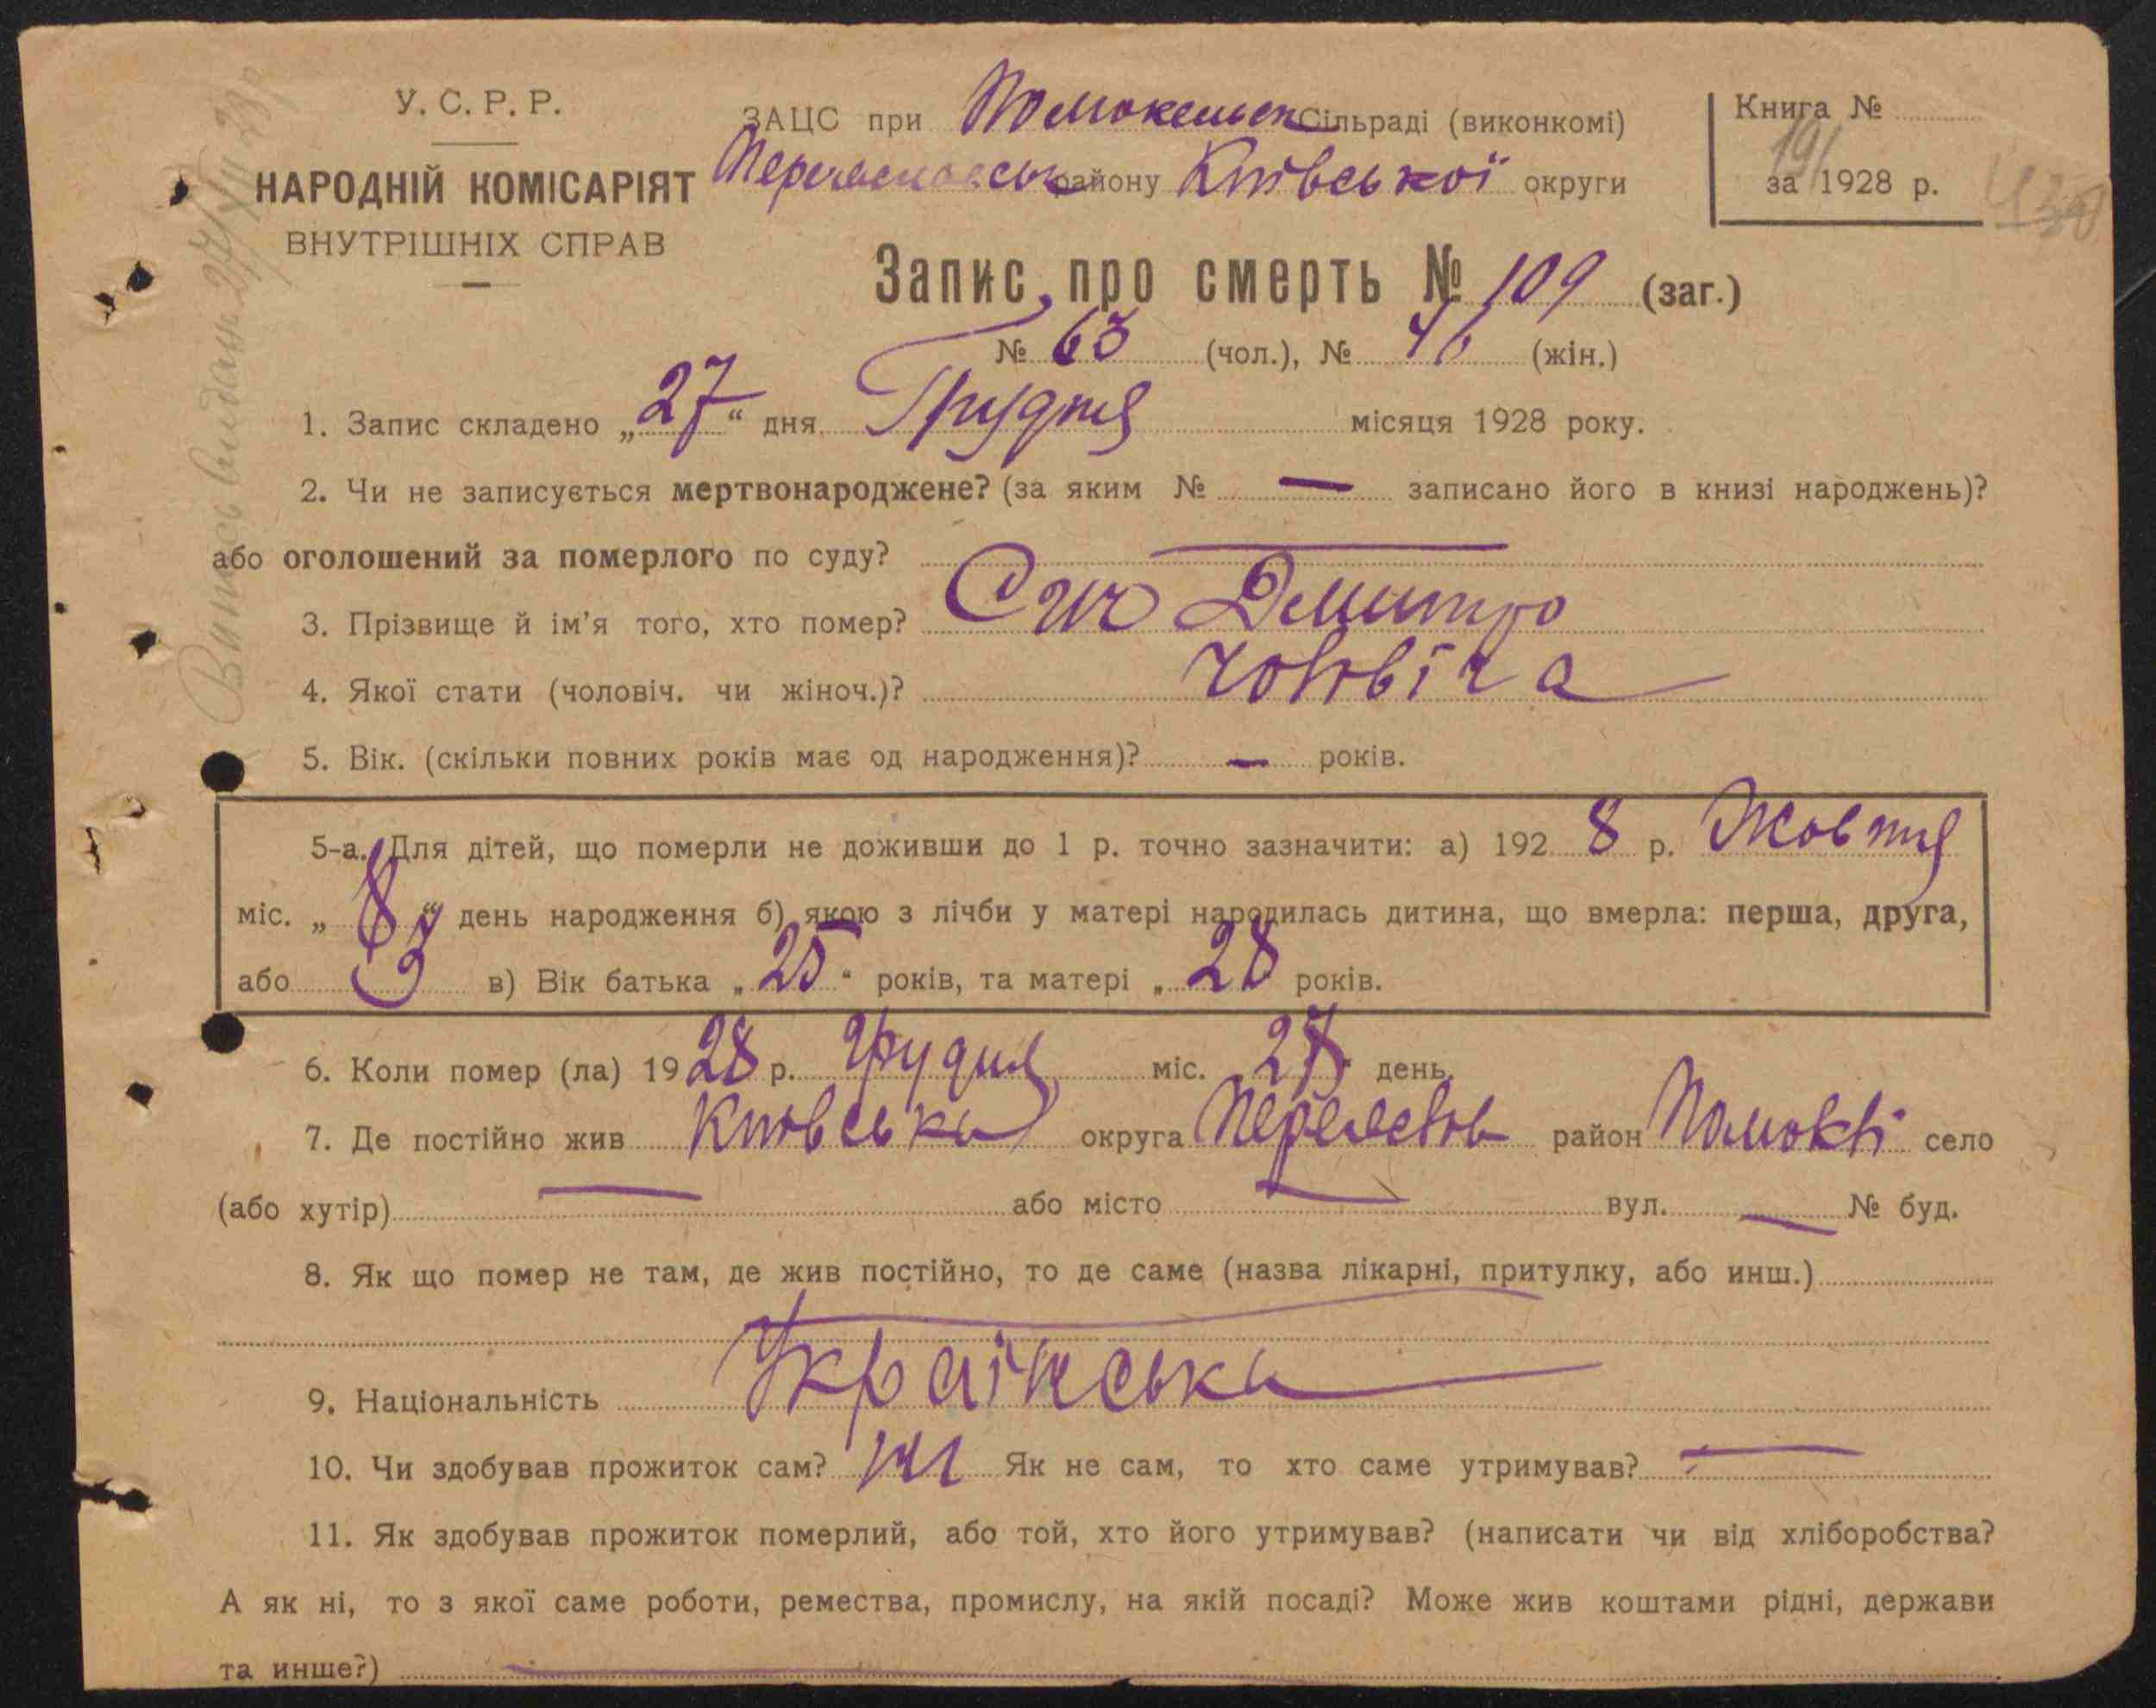 У. С. Р. Р.
НАРОДНІЙ КОМІСАРІЯТ
ВНУТРІШНІХ СПРАВ
ЗАЦС при Помокельск Сільраді (виконкомі)
району Київської округи
Книга №
191
за 1928 р.
Запис про смерть № 109 (заг.)
№ 63 (чол.), № 46 (жін.)
1. Запис складено „27“ дня Грудня місяця 1928 року.
2. Чи не записується мертвонароджене? (за яким № — записано його в книзі народжень)?
або оголошений за померлого по суду? —
3. Прізвище й ім’я того, хто помер? Сич Дмитро
4. Якої стати (чоловіч. чи жіноч.)? чоловіча
5. Вік. (скільки повних років має од народження)? — років.
5-а. Для дітей, що померли не доживши до 1 р. точно зазначити: а) 192 8 р. Жовтня
міс. „8“ день народження б) якою з лічби у матері народилась дитина, що вмерла: перша, друга,
або 3 в) Вік батька „25“ років, та матері „28 років.
6. Коли помер (ла) 1928 р. Грудня міс. 27 день.
7. Де постійно жив Київська округа Переясов район Помоклі село
(або хутір) — або місто — вул. — № буд.
8. Як що помер не там, де жив постійно, то де саме (назва лікарні, притулку, або инш.)
—
9. Національність Українська
10. Чи здобував прожиток сам? ні Як не сам, то хто саме утримував? —
11. Як здобував прожиток померлий, або той, хто його утримував? (написати чи від хліборобства?
А як ні, то з якої саме роботи, ремества, промислу, на якій посаді? Може жив коштами рідні, держави
та инше?) —